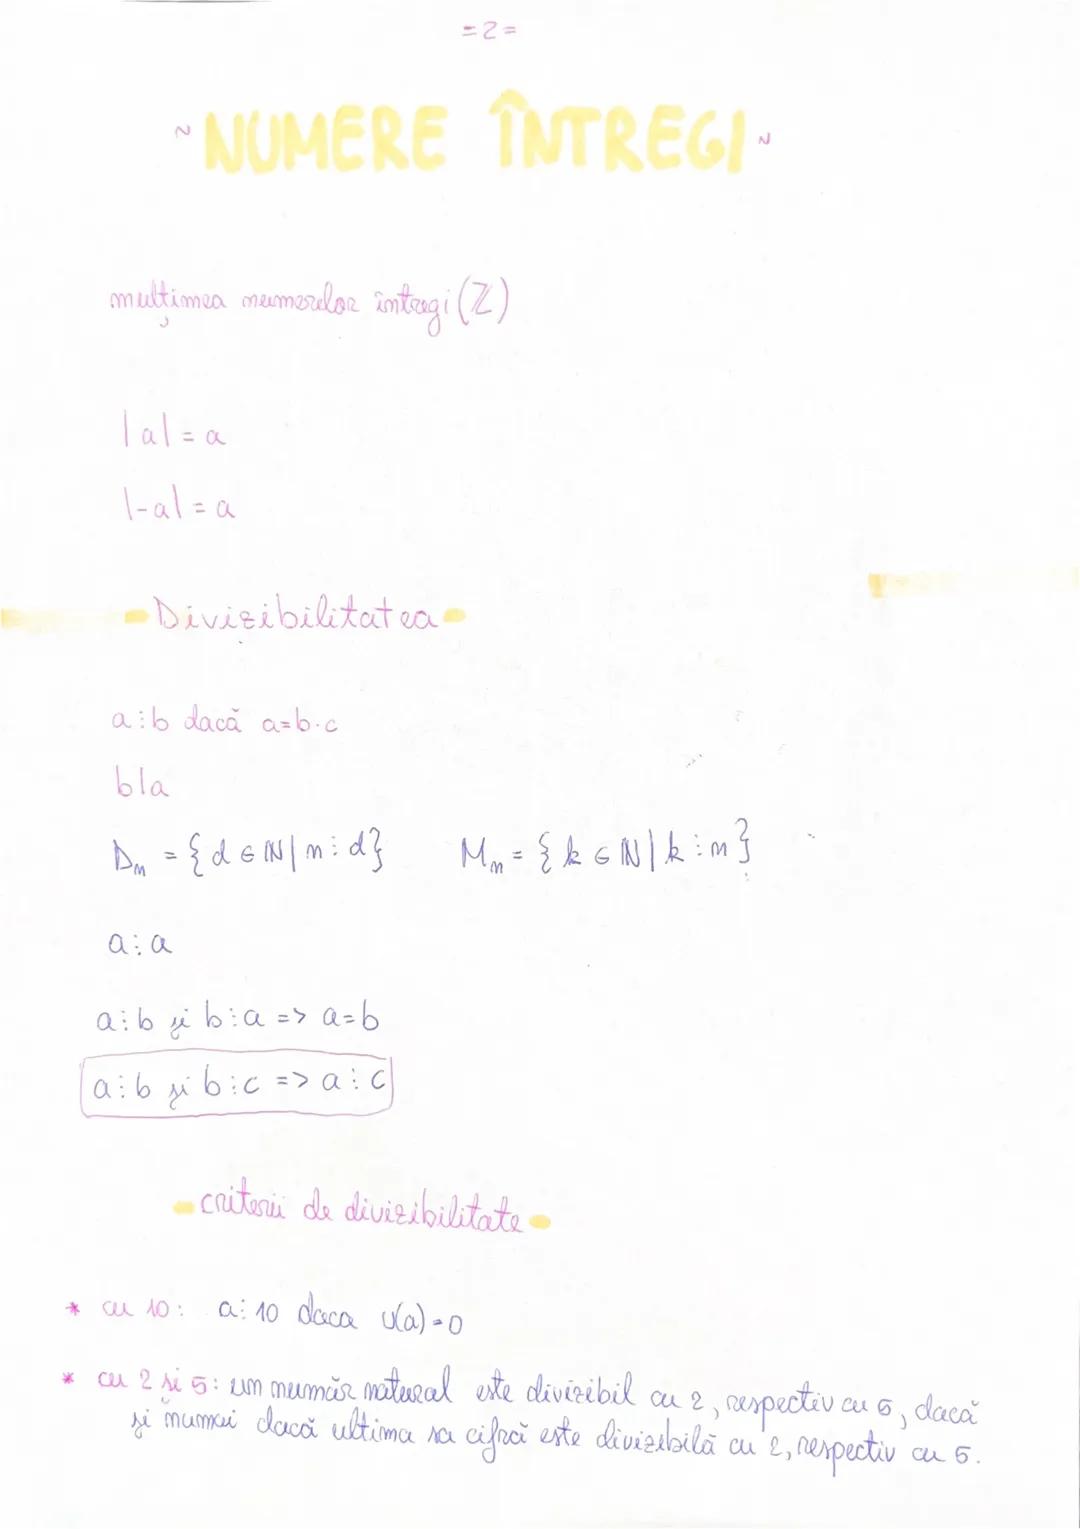 =2=
~NUMERE ÎNTREGI~
mulțimea numerelor întregi (ℤ)
|a| = a
|-a| = a
Divizibilitatea
a⋮b dacă a=b·c
b|a
Dₙ = {d∈ℕ| n⋮d} Mₙ = {k∈ℕ| k⋮n}
a⋮a
a⋮b și b⋮a => a=b
a⋮b și b⋮c => a⋮c
criterii de divizibilitate
* cu 10: a⋮10 daca u(a)=0
* cu 2 si 5: un număr natural este divizibil cu 2, respectiv cu 5, dacă
și numai dacă ultima sa cifră este divizibilă cu 2, respectiv cu 5.